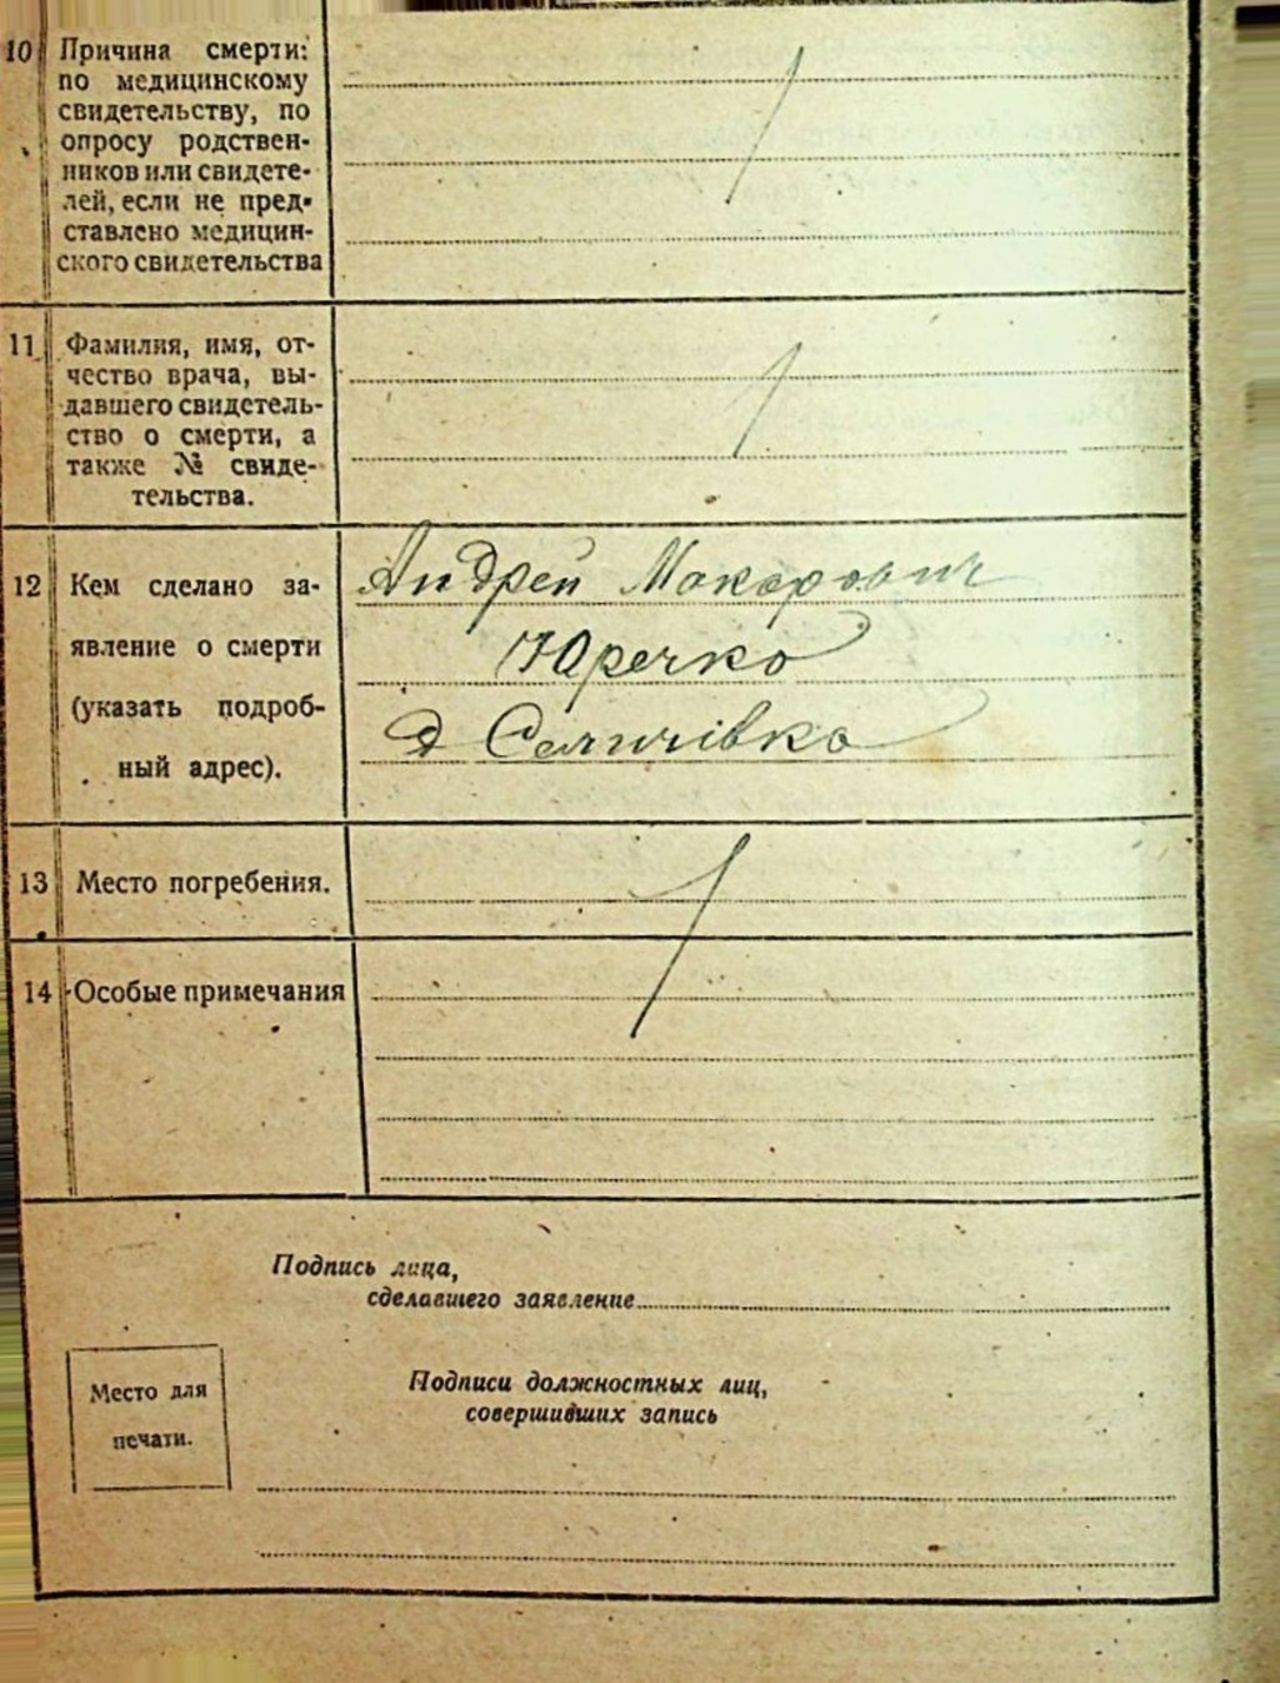 10 Причина смерти:
по медицинскому
свидетельству, по
опросу родствен-
ников или свидете-
лей, если не пред-
ставлено медицин-
ского свидетельства
11 Фамилия, имя, от-
чество врача, вы-
давшего свидетель-
ство о смерти, а
также № свиде-
тельства.
12 Кем сделано за-
явление о смерти
(указать подроб-
ный адрес).
Андрей Макарович
Юречко
д Селичівка
13 Место погребения.
14 Особые примечания
Подпись лица,
сделавшего заявление
Место для
печати.
Подписи должностных лиц,
совершивших запись